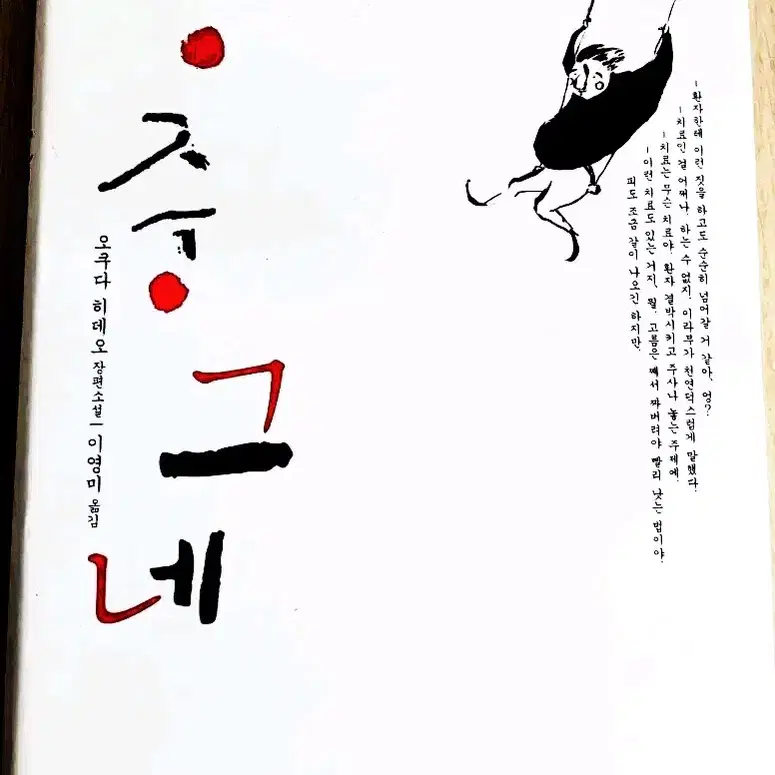 중그네
오쿠다 히데오 장편소설 | 이영미 옮김
–환자한테 이런 짓을 하고도 순순히 넘어갈 거 같아, 엉?
–치료인 걸 어쩌나. 하는 수 없지. 이라부가 천연덕스럽게 말했다.
–치료는 무슨 치료야. 환자 결박시키고 주사나 놓는 주제에.
–이런 치료도 있는 거지, 뭘. 고름은 째서 짜버려야 빨리 낫는 법이야.
피도 조금 같이 나오긴 하지만.